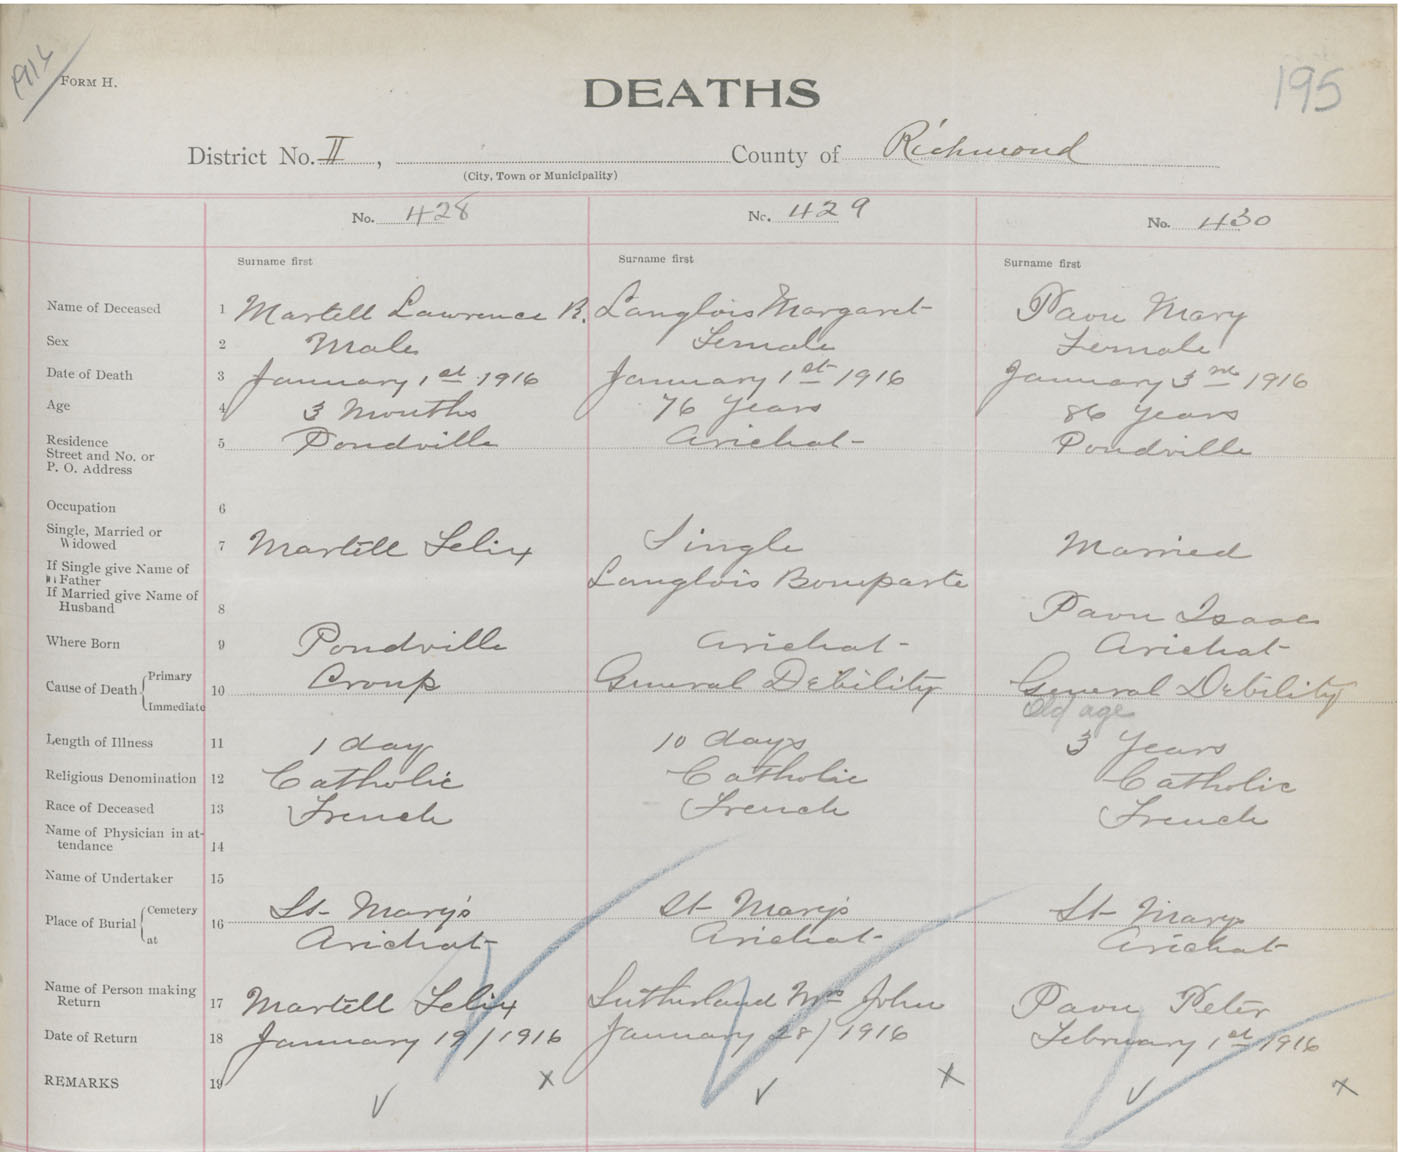 1916
FORM H.
DEATHS
195
District No. II , County of Richmond
(City, Town or Municipality)
No. 428 No. 429 No. 430
Surname first Surname first Surname first
Name of Deceased 1 Martell Lawrence R. Langlois Margaret Pavu Mary
Sex 2 Male Female Female
Date of Death 3 January 1st 1916 January 1st 1916 January 3rd 1916
Age 4 3 Months 76 Years 86 Years
Residence
Street and No. or
P. O. Address 5 Pondville Arichat Pondville
Occupation 6
Single, Married or
Widowed 7 Martell Felix Single Married
If Single give Name of
Father Langlois Boneparte
If Married give Name of
Husband 8 Pavu Isaac
Where Born 9 Pondville Arichat Arichat
Cause of Death Primary
Immediate 10 Croup General Debility General Debility
Old age
Length of Illness 11 1 day 10 days 3 Years
Religious Denomination 12 Catholic Catholic Catholic
Race of Deceased 13 French French French
Name of Physician in at-
tendance 14
Name of Undertaker 15
Place of Burial Cemetery 16 St Mary's St Mary's St Marys
at Arichat Arichat Arichat
Name of Person making
Return 17 Martell Felix Sutherland Mrs John Pavu Peter
Date of Return 18 January 19/1916 January 28/1916 February 1st 1916
REMARKS 19 x x x